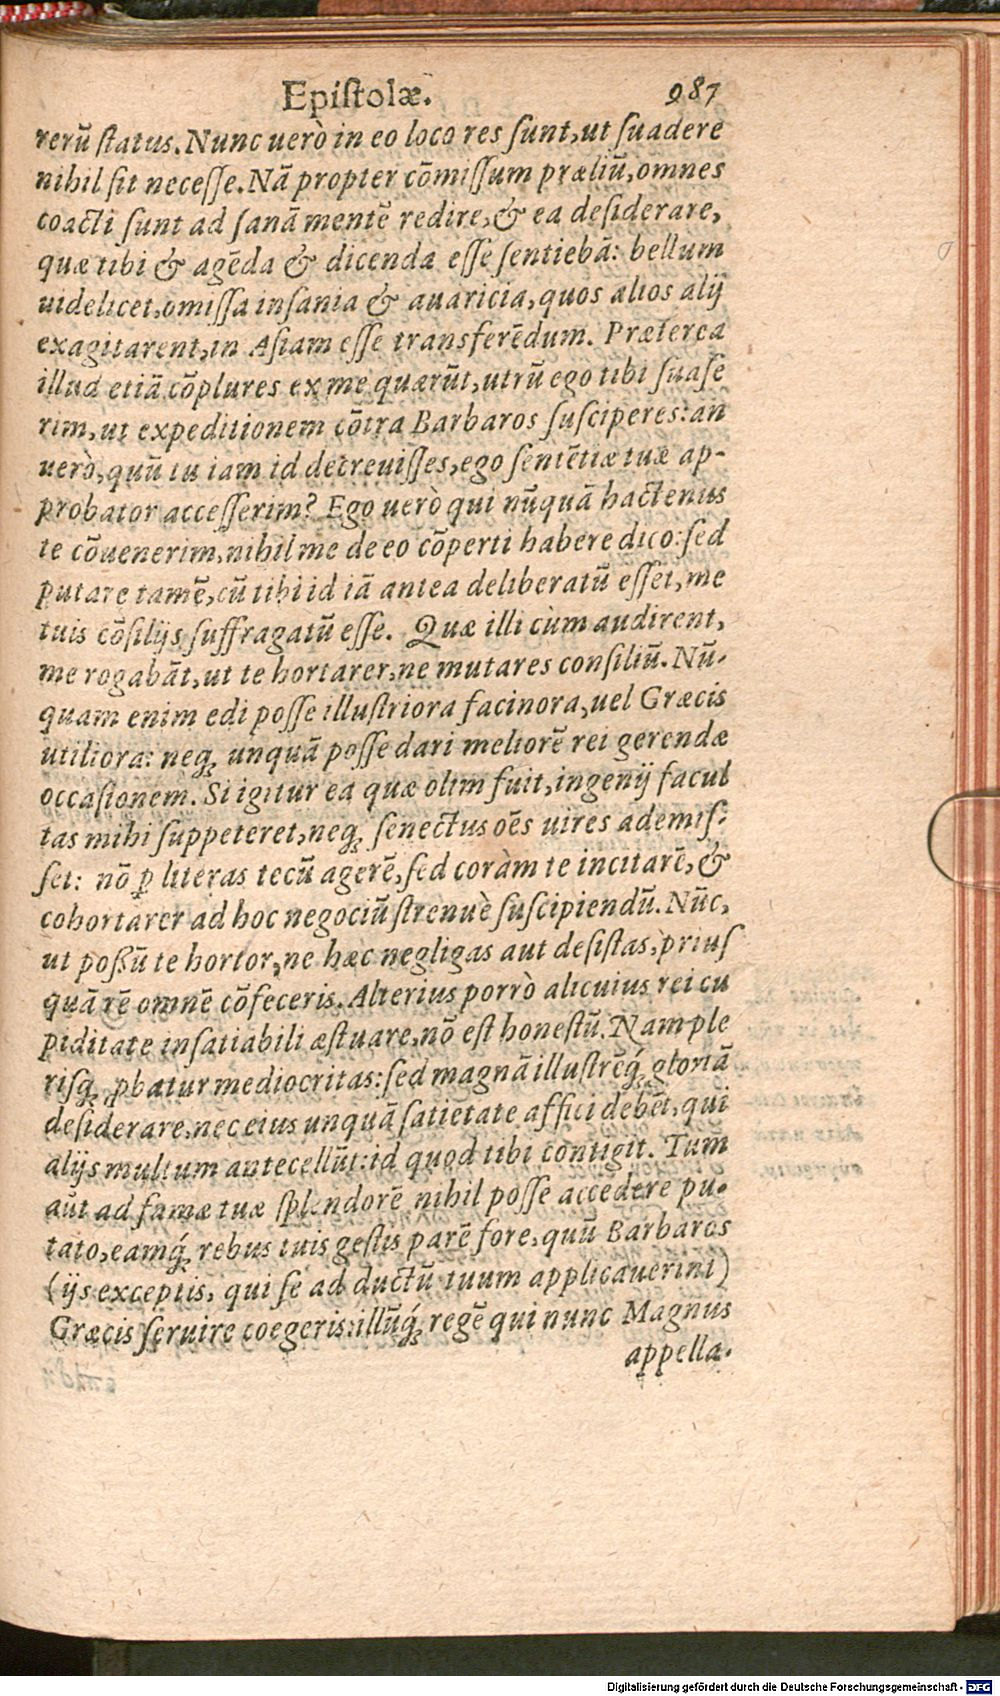 Epiſtolæ. 987
rerũ ſtatus. Nunc uerò in eo loco res ſunt, ut ſuadere
nihil ſit neceſſe. Nã propter cõmiſſum præliũ, omnes
coacti ſunt ad ſanã mentẽ redire, & ea deſiderare,
quæ tibi & agẽda & dicenda eſſe ſentiebã: bellum
uidelicet, omiſſa inſania & auaricia, quos alios alij
exagitarent, in Aſiam eſſe transferẽdum. Præterea
illud etiã cõplures ex me quærũt, utrũ ego tibi ſuaſe
rim, ut expeditionem cõtra Barbaros ſuſciperes: an
uerò, quũ tu iam id decreuiſſes, ego ſentẽtiæ tuæ ap-
probator acceſſerim? Ego uerò qui nũquã hactenus
te cõuenerim, nihil me de eo cõperti habere dico: ſed
putare tamẽ, cũ tibi id iã antea deliberatũ eſſet, me
tuis cõſilijs ſuffragatũ eſſe. Quæ illi cùm audirent,
me rogabãt, ut te hortarer, ne mutares conſiliũ. Nũ-
quam enim edi poſſe illuſtriora facinora, uel Græcis
utiliora: neq́ꝫ unquã poſſe dari meliorẽ rei gerendæ
occaſionem. Si igitur ea quæ olim fuit, ingenij facul
tas mihi ſuppeteret, neqꝫ ſenectus oẽs uires ademiſ-
ſet: nõ ꝑ literas tecũ agerẽ, ſed coràm te incitarẽ, &
cohortarer ad hoc negociũ ſtrenuè ſuſcipiendũ. Nũc,
ut poßũ te hortor, ne hæc negligas aut deſiſtas, priuſ
quã rẽ omnẽ cõfeceris. Alterius porrò alicuius rei cu
piditate inſatiabili æſtuare, nõ eſt honeſtũ. Nam ple
riſqꝫ ꝓbatur mediocritas: ſed magnã illuſtrẽq́ꝫ gloriã
deſiderare, nec eius unquã ſatietate affici debẽt, qui
alijs multum antecellũt: id quod tibi contigit. Tum
aũt ad famæ tuæ ſplendorẽ nihil poſſe accedere pu-
tato, eamq́ꝫ rebus tuis geſtis parẽ fore, quũ Barbaros
(ijs exceptis, qui ſe ad ductũ tuum applicauerint)
Græcis ſeruire coegeris: illũq́ꝫ regẽ qui nunc Magnus
appella-
Digitalisierung gefördert durch die Deutsche Forschungsgemeinschaft - DFG